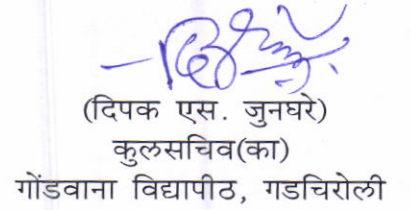 (दिपक एस. जुनघरे)
कुलसचिव(का)
गोंडवाना विद्यापीठ, गडचिरोली